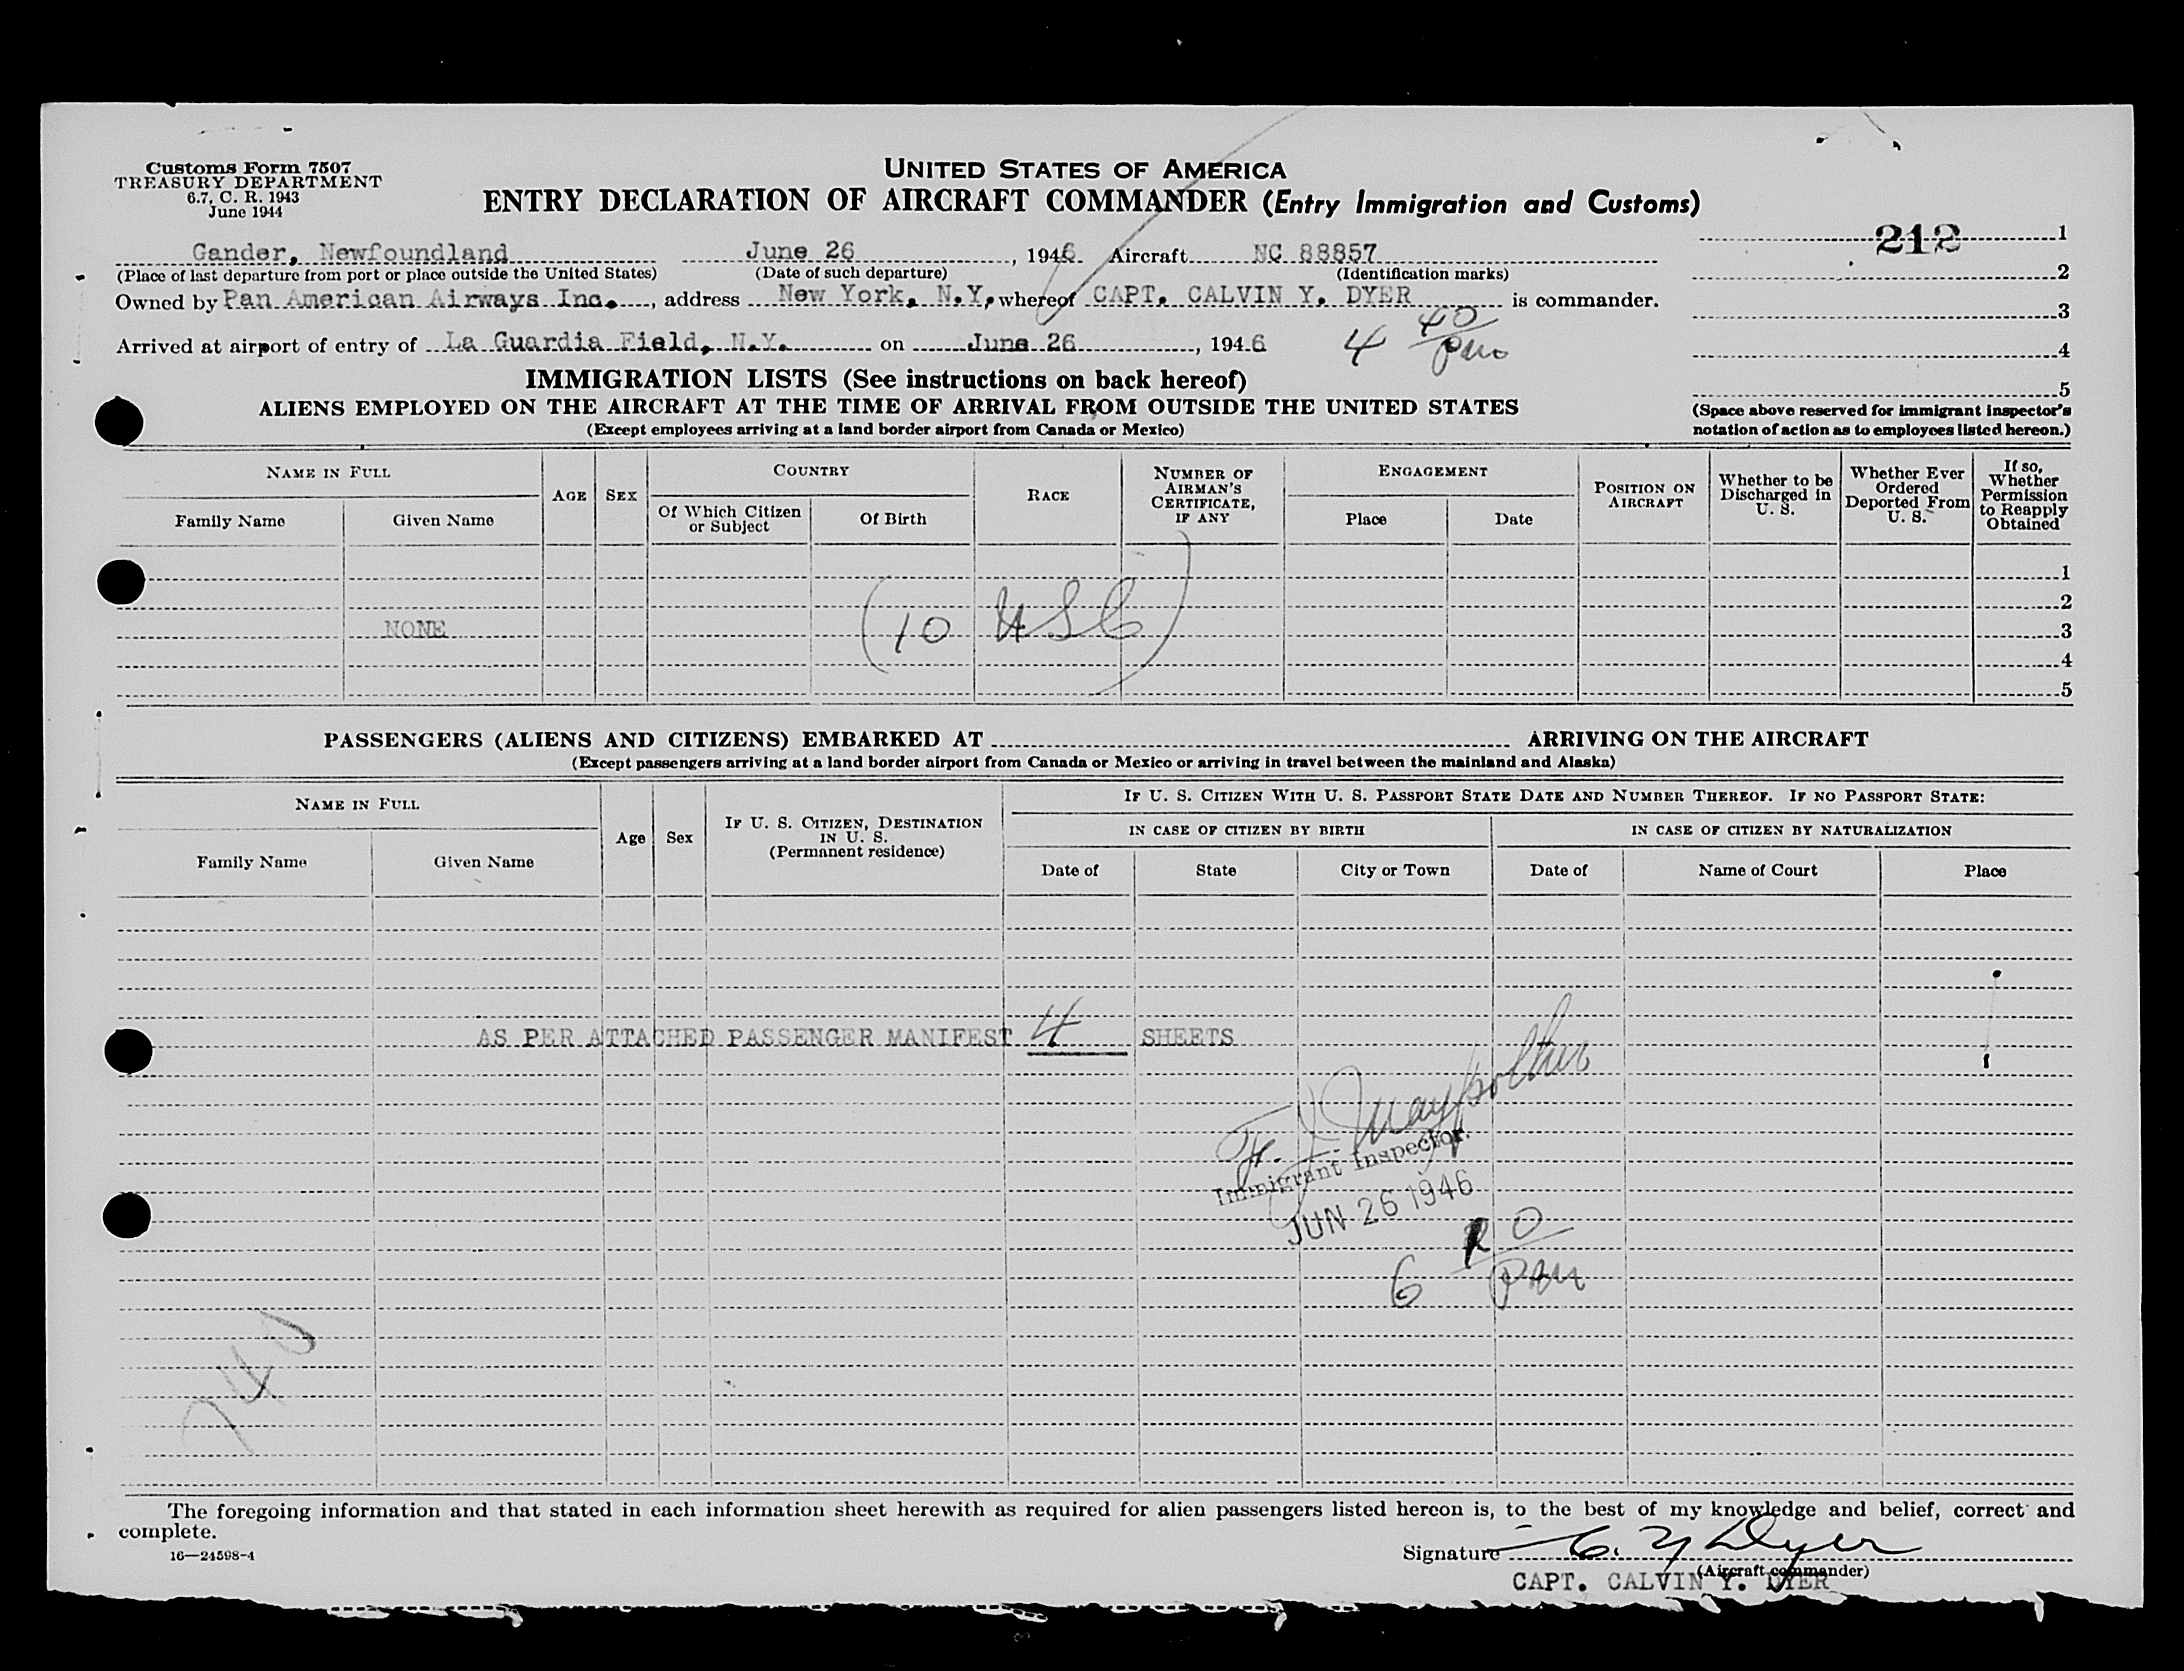 Customs Form 7507
TREASURY DEPARTMENT
6.7, C. R. 1943
June 1944
UNITED STATES OF AMERICA
ENTRY DECLARATION OF AIRCRAFT COMMANDER (Entry Immigration and Customs)
212 1
Gander, Newfoundland June 26, 1946 Aircraft NC 88857
(Place of last departure from port or place outside the United States) (Date of such departure) (Identification marks)
2
Owned by Pan American Airways Inc., address New York, N.Y. whereof CAPT. CALVIN Y. DYER is commander.
3
Arrived at airport of entry of La Guardia Field, N.Y. on June 26, 1946 4 40 pm
4
IMMIGRATION LISTS (See instructions on back hereof)
5
ALIENS EMPLOYED ON THE AIRCRAFT AT THE TIME OF ARRIVAL FROM OUTSIDE THE UNITED STATES
(Except employees arriving at a land border airport from Canada or Mexico)
(Space above reserved for immigrant inspector's
notation of action as to employees listed hereon.)
NAME IN FULL
Family Name
Given Name
AGE
SEX
COUNTRY
Of Which Citizen
or Subject
Of Birth
RACE
NUMBER OF
AIRMAN'S
CERTIFICATE,
IF ANY
ENGAGEMENT
Place
Date
POSITION ON
AIRCRAFT
Whether to be
Discharged in
U. S.
Whether Ever
Ordered
Deported From
U. S.
If so,
Whether
Permission
to Reapply
Obtained
1
2
NONE (10 USC) 3
4
5
PASSENGERS (ALIENS AND CITIZENS) EMBARKED AT ARRIVING ON THE AIRCRAFT
(Except passengers arriving at a land border airport from Canada or Mexico or arriving in travel between the mainland and Alaska)
NAME IN FULL
Family Name
Given Name
Age
Sex
IF U. S. CITIZEN, DESTINATION
IN U. S.
(Permanent residence)
IF U. S. CITIZEN WITH U. S. PASSPORT STATE DATE AND NUMBER THEREOF. IF NO PASSPORT STATE:
IN CASE OF CITIZEN BY BIRTH
Date of
State
City or Town
IN CASE OF CITIZEN BY NATURALIZATION
Date of
Name of Court
Place
AS PER ATTACHED PASSENGER MANIFEST 4 SHEETS
Immigrant Inspector.
JUN 26 1946
6 pm
The foregoing information and that stated in each information sheet herewith as required for alien passengers listed hereon is, to the best of my knowledge and belief, correct and
complete.
16—24598-4
Signature C. Y Dyer
(Aircraft commander)
CAPT. CALVIN Y. DYER